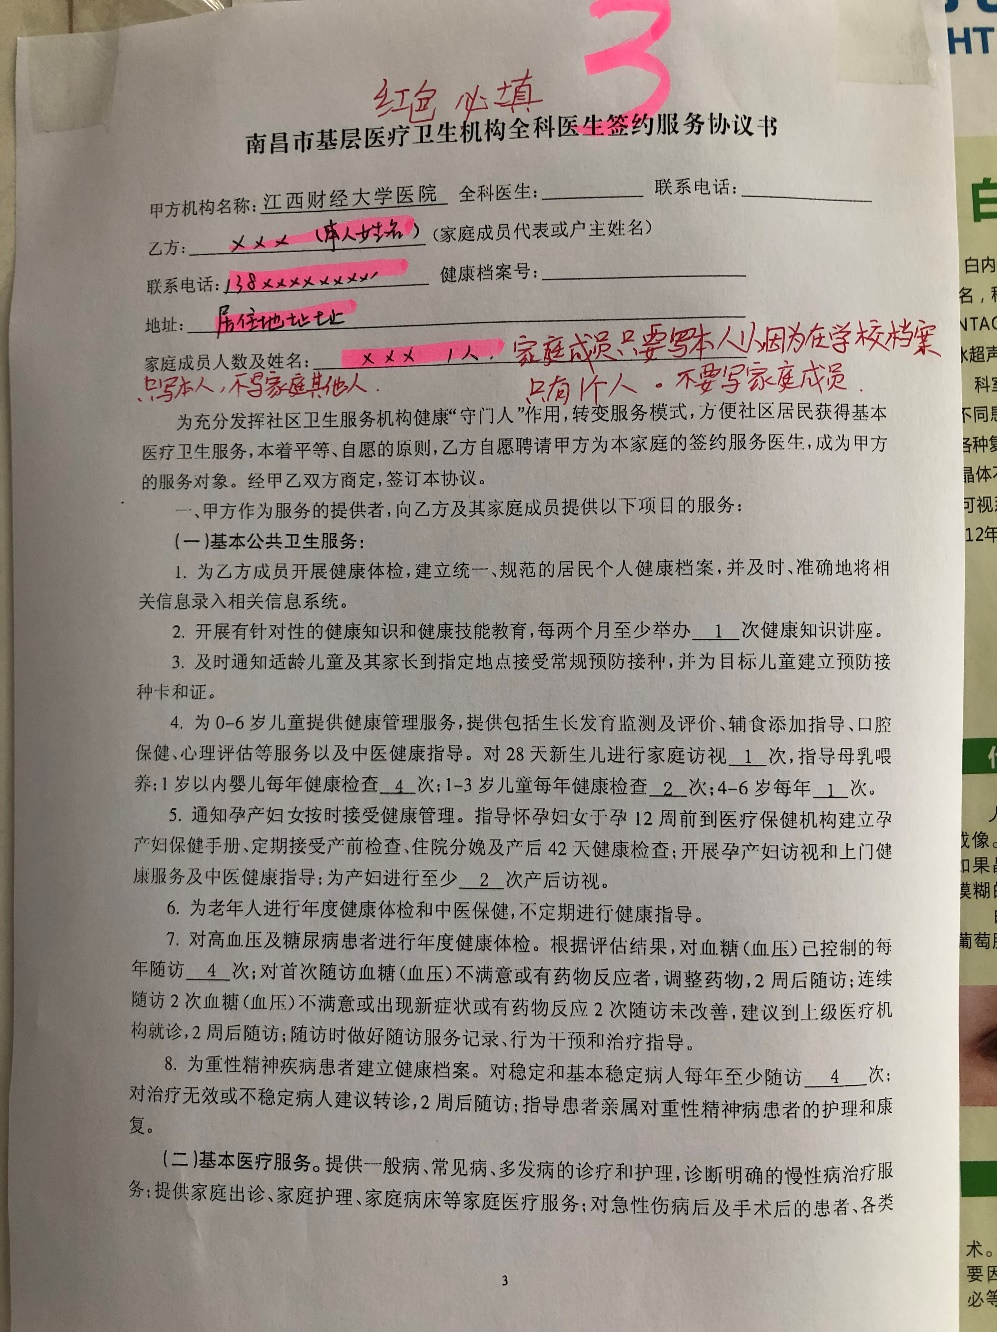 3
HT
红色 必填
南昌市基层医疗卫生机构全科医生签约服务协议书
甲方机构名称:江西财经大学医院 全科医生: 联系电话:
乙方: xxx (本人姓名) (家庭成员代表或户主姓名)
联系电话:138xxxxxxxx 健康档案号:
地址: 居住地址
家庭成员人数及姓名: xxx 1人. 家庭成员只要写本人 因为在学校档案
只写本人,不写家庭其他人. 只有1个人。不要写家庭成员.
为充分发挥社区卫生服务机构健康“守门人”作用,转变服务模式,方便社区居民获得基本
医疗卫生服务,本着平等、自愿的原则,乙方自愿聘请甲方为本家庭的签约服务医生,成为甲方
的服务对象。经甲乙双方商定,签订本协议。
一、甲方作为服务的提供者,向乙方及其家庭成员提供以下项目的服务:
(一)基本公共卫生服务:
1. 为乙方成员开展健康体检,建立统一、规范的居民个人健康档案,并及时、准确地将相
关信息录入相关信息系统。
2. 开展有针对性的健康知识和健康技能教育,每两个月至少举办 1 次健康知识讲座。
3. 及时通知适龄儿童及其家长到指定地点接受常规预防接种,并为目标儿童建立预防接
种卡和证。
4. 为0-6岁儿童提供健康管理服务,提供包括生长发育监测及评价、辅食添加指导、口腔
保健、心理评估等服务以及中医健康指导。对28天新生儿进行家庭访视 1 次,指导母乳喂
养;1岁以内婴儿每年健康检查 4 次;1-3岁儿童每年健康检查 2 次;4-6岁每年 1 次。
5. 通知孕产妇女按时接受健康管理。指导怀孕妇女于孕12周前到医疗保健机构建立孕
产妇保健手册、定期接受产前检查、住院分娩及产后42天健康检查;开展孕产妇访视和上门健
康服务及中医健康指导;为产妇进行至少 2 次产后访视。
6. 为老年人进行年度健康体检和中医保健,不定期进行健康指导。
7. 对高血压及糖尿病患者进行年度健康体检。根据评估结果,对血糖(血压)已控制的每
年随访 4 次;对首次随访血糖(血压)不满意或有药物反应者,调整药物,2周后随访;连续
随访2次血糖(血压)不满意或出现新症状或有药物反应2次随访未改善,建议到上级医疗机
构就诊,2周后随访;随访时做好随访服务记录、行为干预和治疗指导。
8. 为重性精神疾病患者建立健康档案。对稳定和基本稳定病人每年至少随访 4 次;
对治疗无效或不稳定病人建议转诊,2周后随访;指导患者亲属对重性精神病患者的护理和康
复。
(二)基本医疗服务。提供一般病、常见病、多发病的诊疗和护理,诊断明确的慢性病治疗服
务;提供家庭出诊、家庭护理、家庭病床等家庭医疗服务;对急性伤病后及手术后的患者、各类
3
白
白内
名,
NTAC
超声
科室
不同
各种
晶体
可视
12年
成像。
如果
模糊的
葡萄
术。
要因
必等